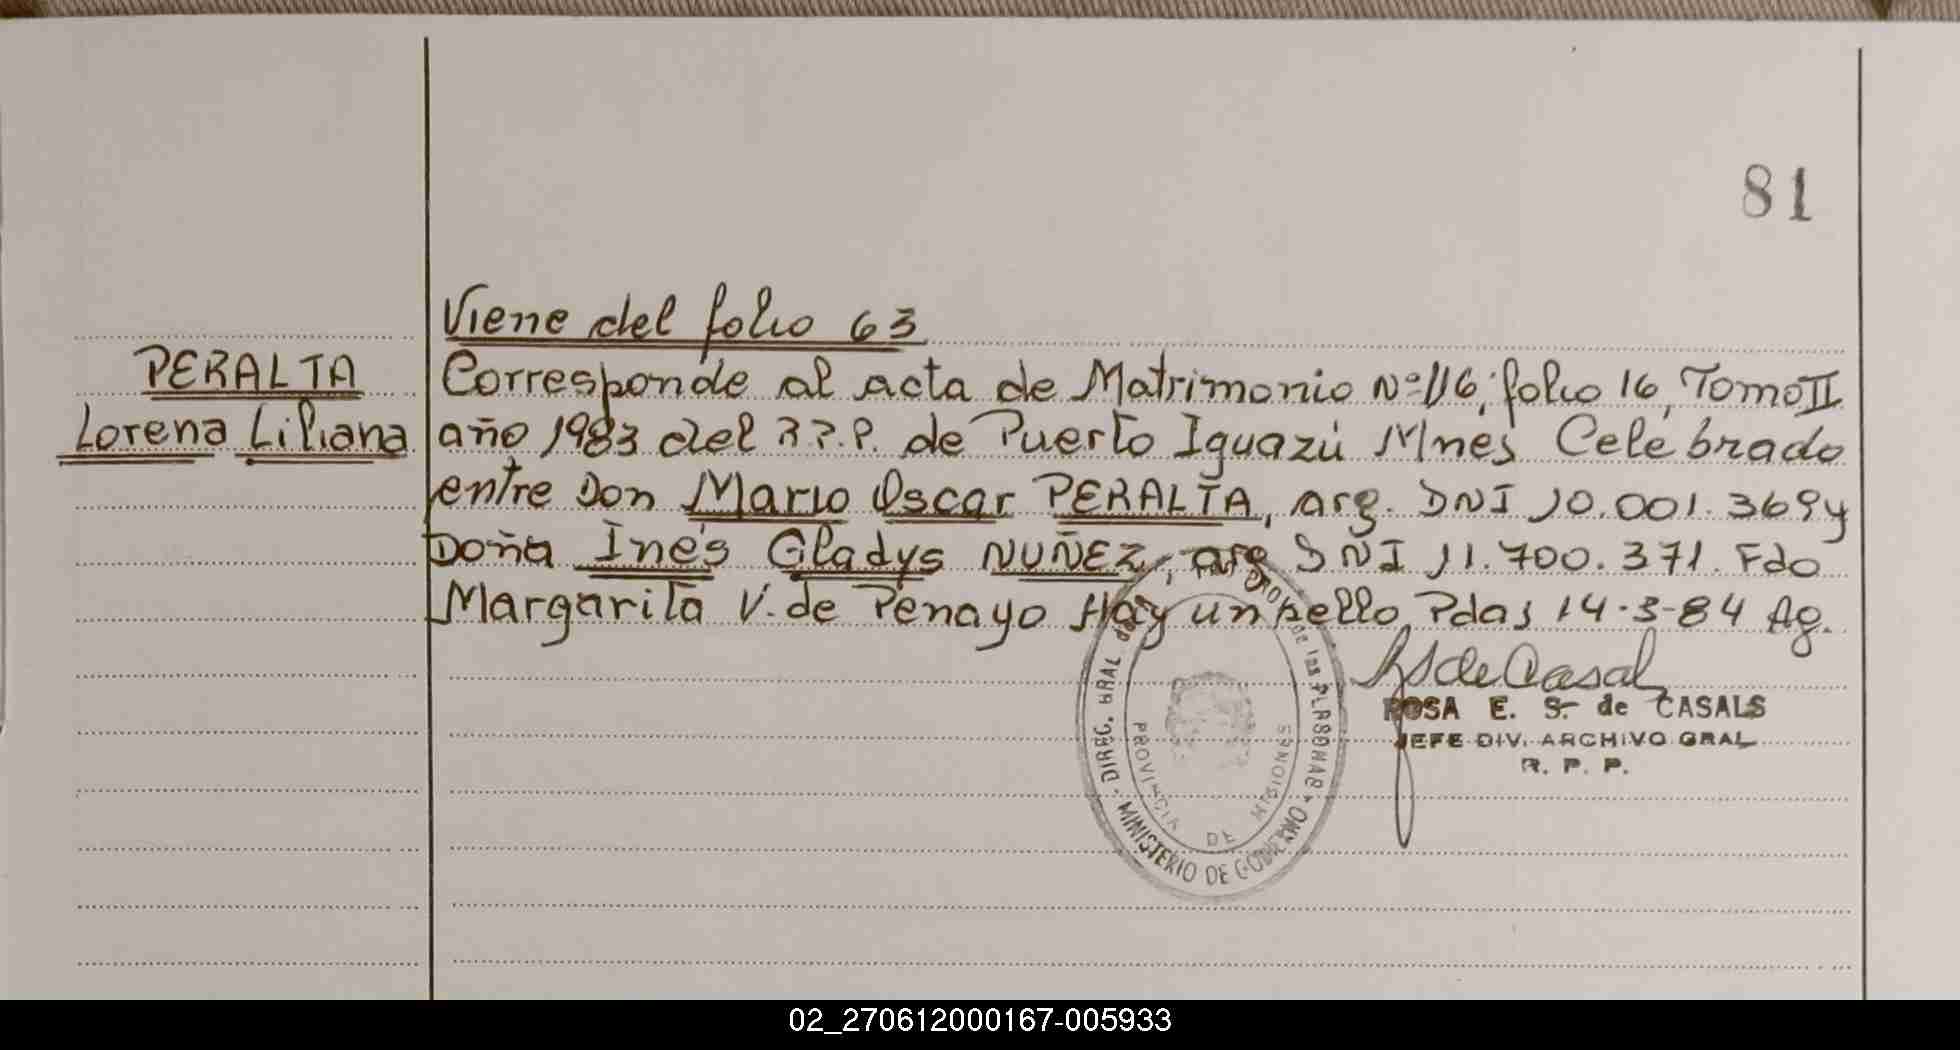 81
Viene del folio 63
PERALTA
Lorena Liliana
Corresponde al acta de Matrimonio Nº 116, folio 16, Tomo II
año 1983 del R.P.P. de Puerto Iguazú Mnes Celebrado
entre Don Mario Oscar PERALTA, arg. DNI 10.001.369 y
Doña Inés Gladys NUÑEZ, arg DNI 11.700.371. Fdo
Margarita V. de Penayo Hay un sello, Pdas 14-3-84 Ag.
ROSA E. S. de CASALS
JEFE DIV. ARCHIVO GRAL
R. P. P.
DIREC. GRAL de las PERSONAS
MINISTERIO DE GOBIERNO
PROVINCIA DE MISIONES
02_270612000167-005933